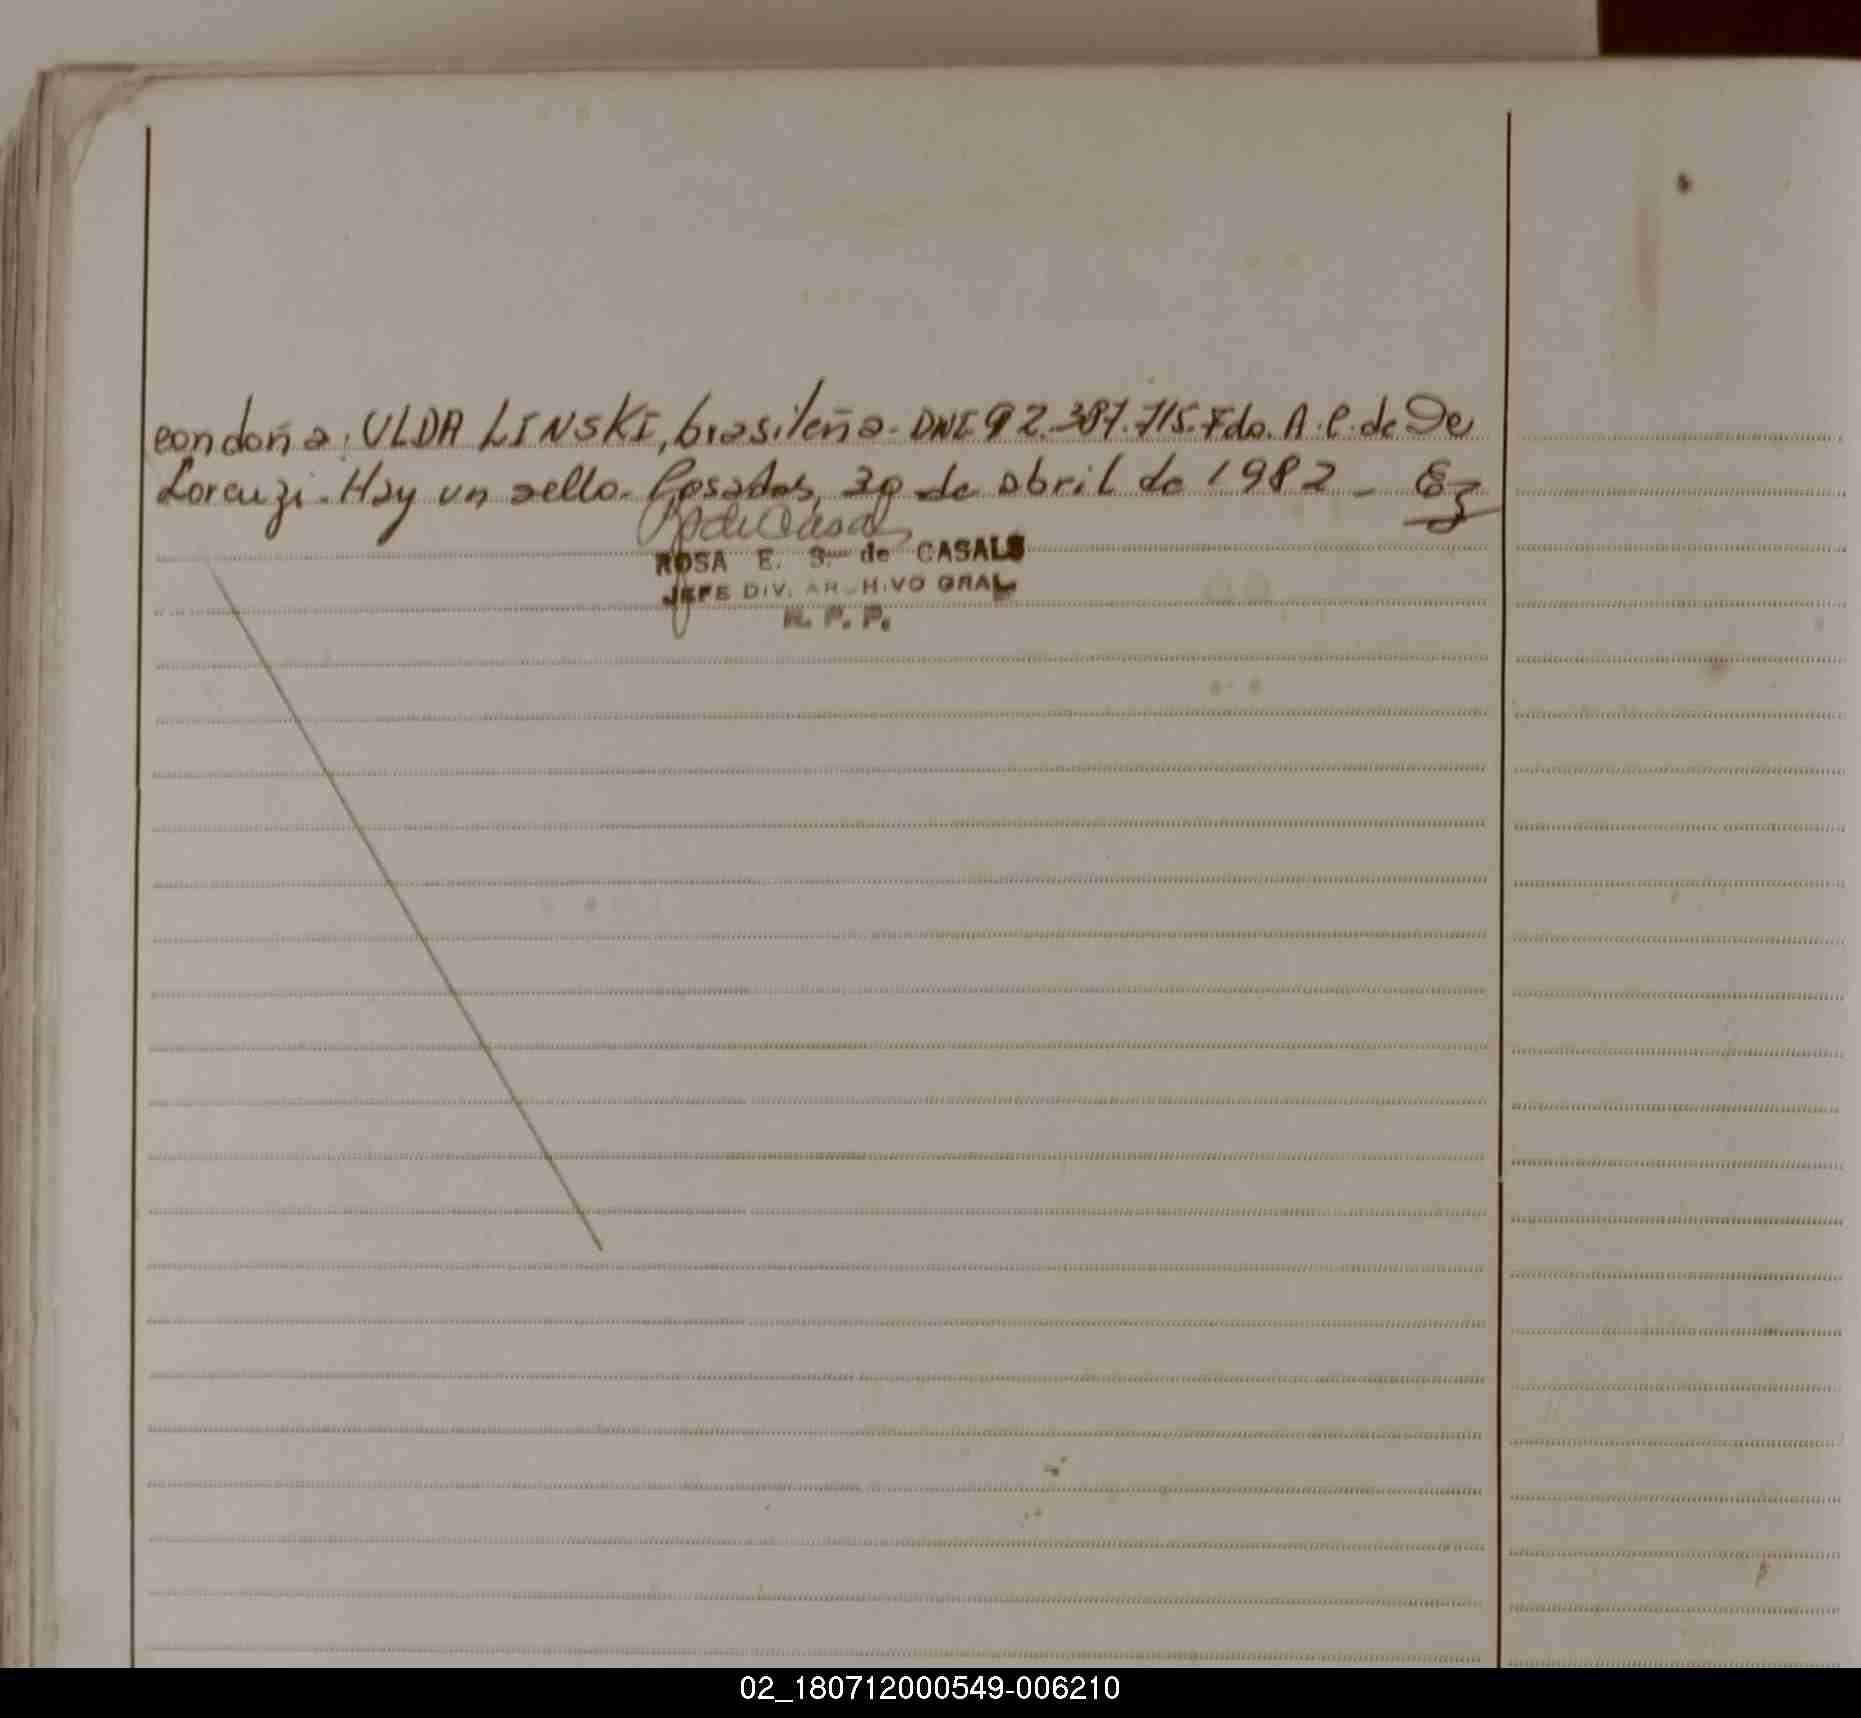 con doña: ULDA LINSKI, brasileña. DNI 92.387.715. Fdo. A. C. de De
Lorenzi. Hay un sello. Posadas, 30 de abril de 1982 -
ROSA E. S. de CASALS
JEFE DIV. ARCHIVO GRAL
R. P. P.
02_180712000549-006210